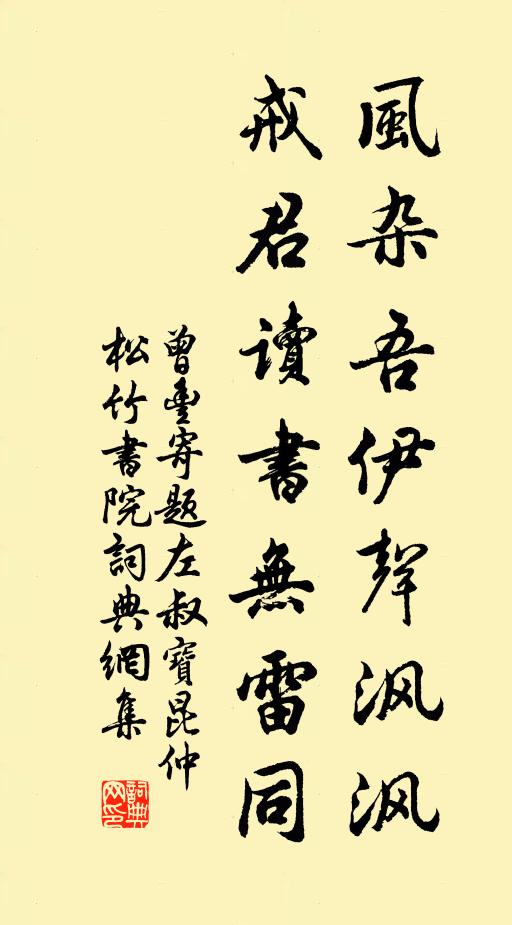 風杂吾伊聲沨沨
戒君讀書無雷同
曾豐寄题左叔寶昆仲
松竹書院詞典網集
詞典网印